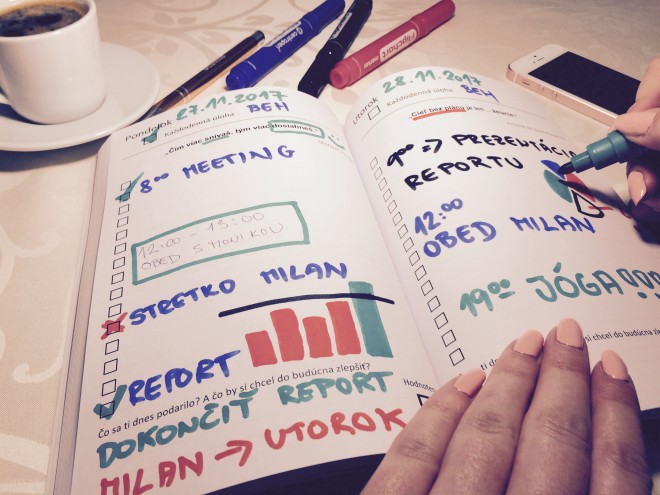 Pondelok 27.11.2017
Každodenná úloha BEH
„Čím viac snívaš, tým viac dosiahneš."
8⁰⁰ MEETING
12:00 - 13:00
OBED S MONIKOU
STRETKO MILAN
REPORT
Čo sa ti dnes podarilo? A čo by si chcel do budúcna zlepšiť?
DOKONČIŤ REPORT
MILAN → UTOROK
Utorok 28.11.2017
Každodenná úloha BEH
„Cieľ bez plánu je len
9⁰⁰ => PREZENTÁCIA
REPORTU
12:00
OBED MILAN
19⁰⁰ JÓGA!!!
si chcel do budúcna zlepšiť?
Hodnote
Flipchart
marker
centropen